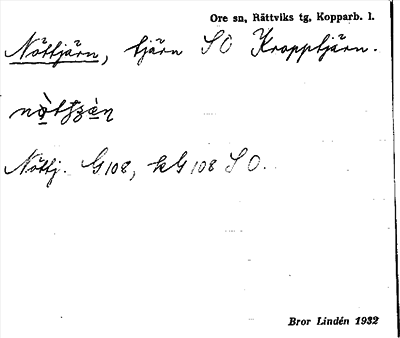 Ore sn, Rättviks tg, Kopparb. l.
Nöttjärn, tjärn SO Kropptjärn.
Nöttj. G 108, kG 108 SO.
Bror Lindén 1932